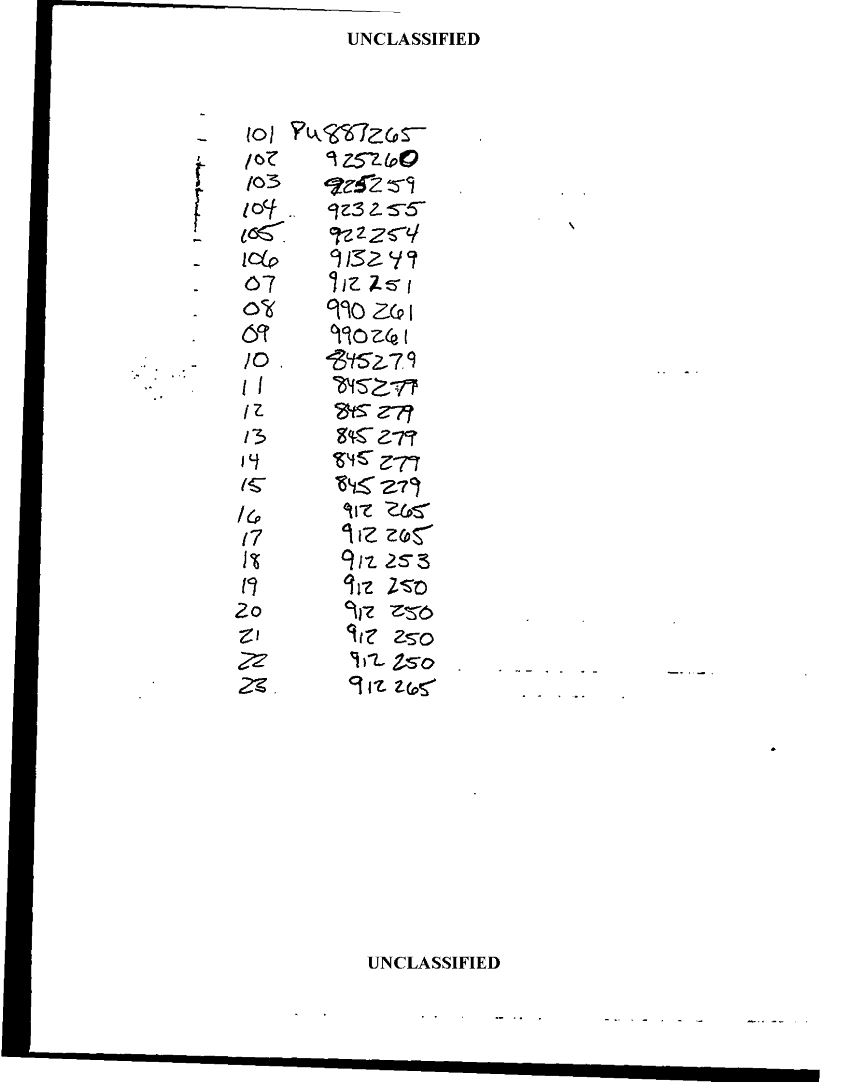 UNCLASSIFIED
101 PU887265
102 925260
103 925259
104 923255
105 922254
106 913249
07 912251
08 990261
09 990261
10 845279
11 845279
12 845279
13 845279
14 845279
15 845279
16 912 265
17 912 265
18 912 253
19 912 250
20 912 250
21 912 250
22 912 250
23 912 265
UNCLASSIFIED